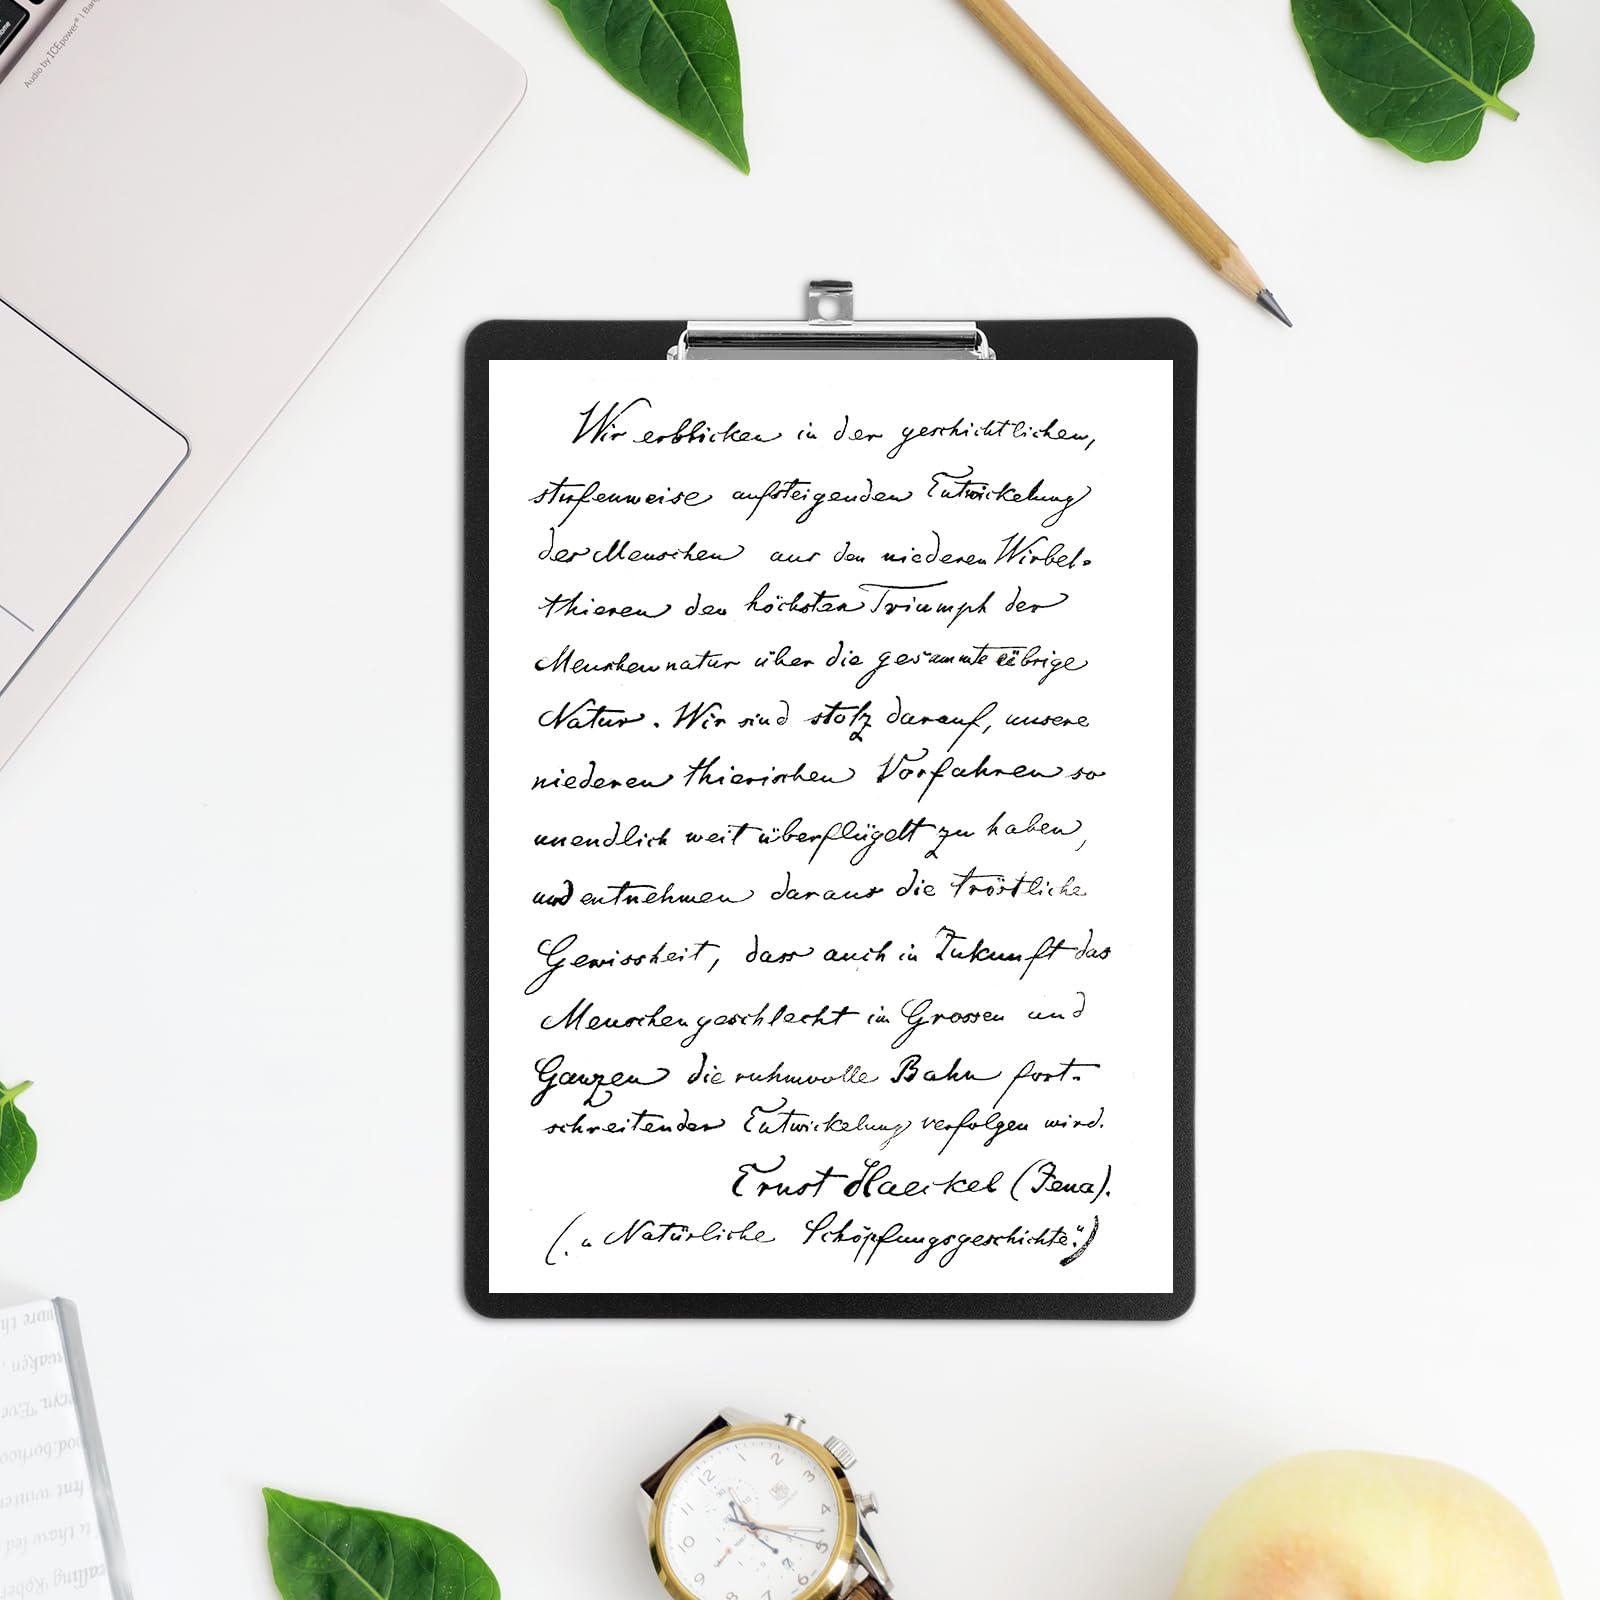 Audio by ICEpower® | Bang
Wir erblicken in der geschichtlichen,
stufenweise aufsteigenden Entwickelung
des Menschen aus den niederen Wirbel-
thieren den höchsten Triumph der
Menschennatur über die gesammte übrige
Natur. Wir sind stolz darauf, unsere
niederen thierischen Vorfahren so
unendlich weit überflügelt zu haben,
und entnehmen daraus die tröstliche
Gewissheit, dass auch in Zukunft das
Menschengeschlecht im Grossen und
Ganzen die ruhmvolle Bahn fort-
schreitender Entwickelung verfolgen wird.
Ernst Haeckel (Jena).
(„Natürliche Schöpfungsgeschichte“)
12 1 2 3 4 5 6 7 8 9 10 11